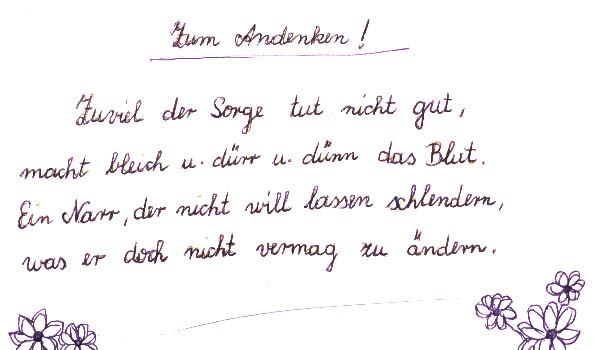 Zum Andenken!
Zuviel der Sorge tut nicht gut,
macht bleich u. dürr u. dünn das Blut.
Ein Narr, der nicht will lassen schlendern,
was er doch nicht vermag zu ändern.